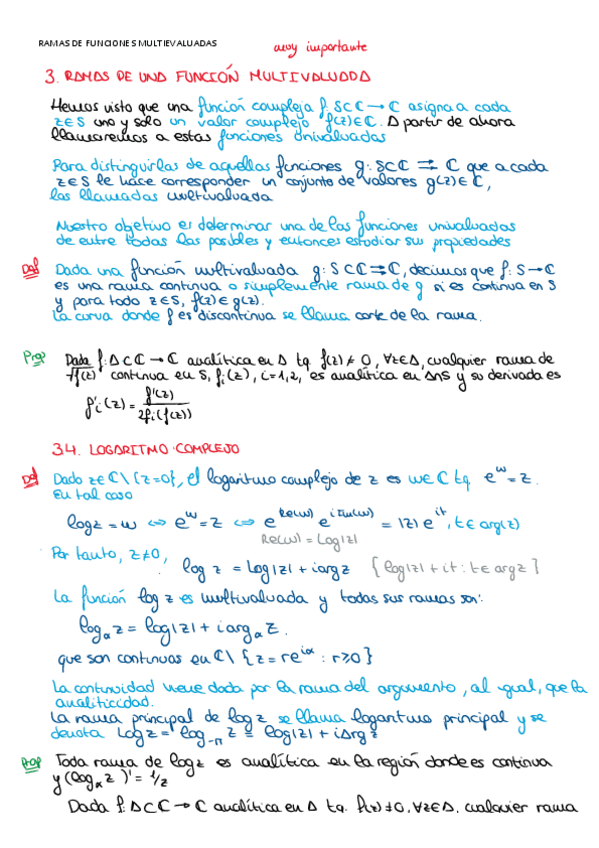 RAMAS DE FUNCIONES MULTIEVALUADAS
muy importante
3. RAMAS DE UNA FUNCIÓN MULTIVALUADA
Hemos visto que una función compleja f: S⊂ℂ → ℂ asigna a cada
z∈S uno y solo un valor complejo f(z)∈ℂ. A partir de ahora
llamaremos a estas funciones univaluadas
Para distinguirlas de aquellas funciones g: S⊂ℂ ⇉ ℂ que a cada
z∈S le hace corresponder un conjunto de valores g(z)∈ℂ,
las llamadas multivaluada
Nuestro objetivo es determinar una de las funciones univaluadas
de entre todas las posibles y entonces estudiar sus propiedades
Def Dada una función multivaluada g: S⊂ℂ⇉ℂ, decimos que f: S→ℂ
es una rama continua o simplemente rama de g si es continua en S
y para todo z∈S, f(z)∈g(z).
La curva donde f es discontinua se llama corte de la rama.
Prop Dada f: A⊂ℂ → ℂ analítica en A tq. f(z)≠0, ∀z∈A, cualquier rama de
√f(z) continua en S, fi(z), i=1,2, es analítica en A∩S y su derivada es
f'i(z) = f'(z) / 2fi(f(z))
3.4. LOGARITMO COMPLEJO
Def Dado z∈ℂ\{z=0}, el logaritmo complejo de z es w∈ℂ tq e^w = z.
En tal caso
log z = w ⇔ e^w = z ⇔ e^Re(w) e^i Im(w) = |z| e^it, t∈arg(z)
Re(w) = Log|z|
Por tanto, z≠0,
log z = Log|z| + i arg z { log|z| + it : t∈arg z }
La función log z es multivaluada y todas sus ramas son:
log_α z = log|z| + i arg_α z.
que son continuas en ℂ\{z = re^iα : r≥0}
La continuidad viene dada por la rama del argumento, al igual, que la
analiticidad.
La rama principal de log z se llama logaritmo principal y se
denota Log z = log_-π z = log|z| + i Arg z
Prop Toda rama de log z es analítica en la región donde es continua
y (log_α z)' = 1/z
Dada f: A⊂ℂ → ℂ analítica en A tq. f(z)≠0, ∀z∈A, cualquier rama